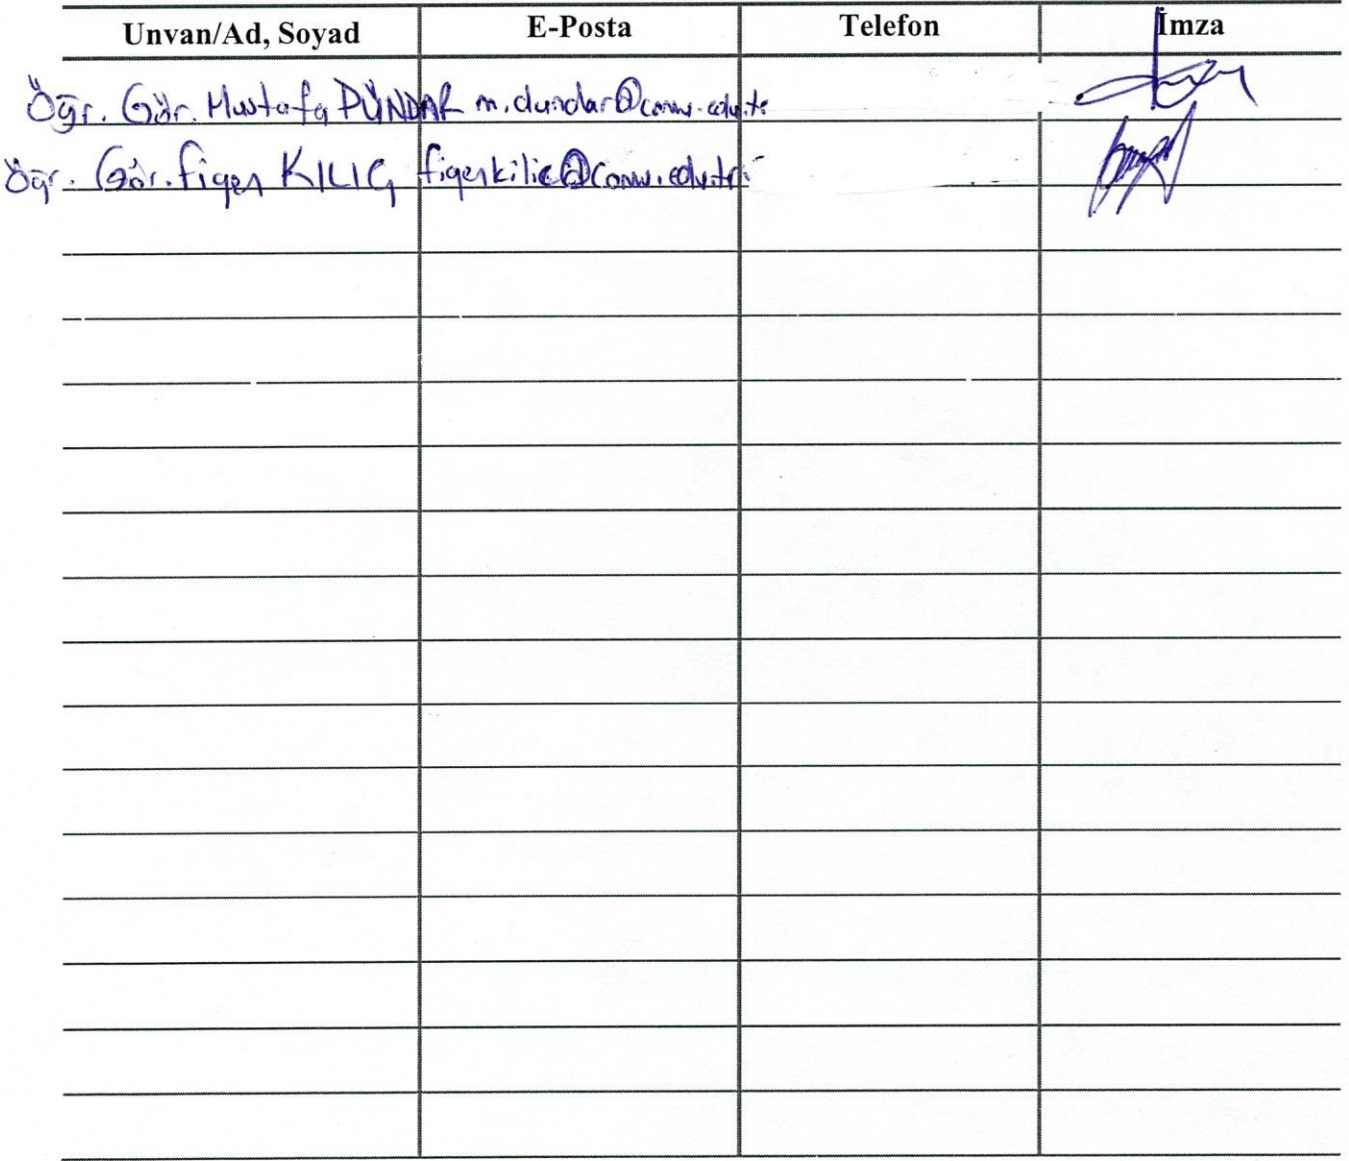 Unvan/Ad, Soyad E-Posta Telefon İmza
Öğr. Gör. Mustafa DÜNDAR m.dundar@comu.edu.tr
Öğr. Gör. Figen KILIÇ figenkilic@comu.edu.tr